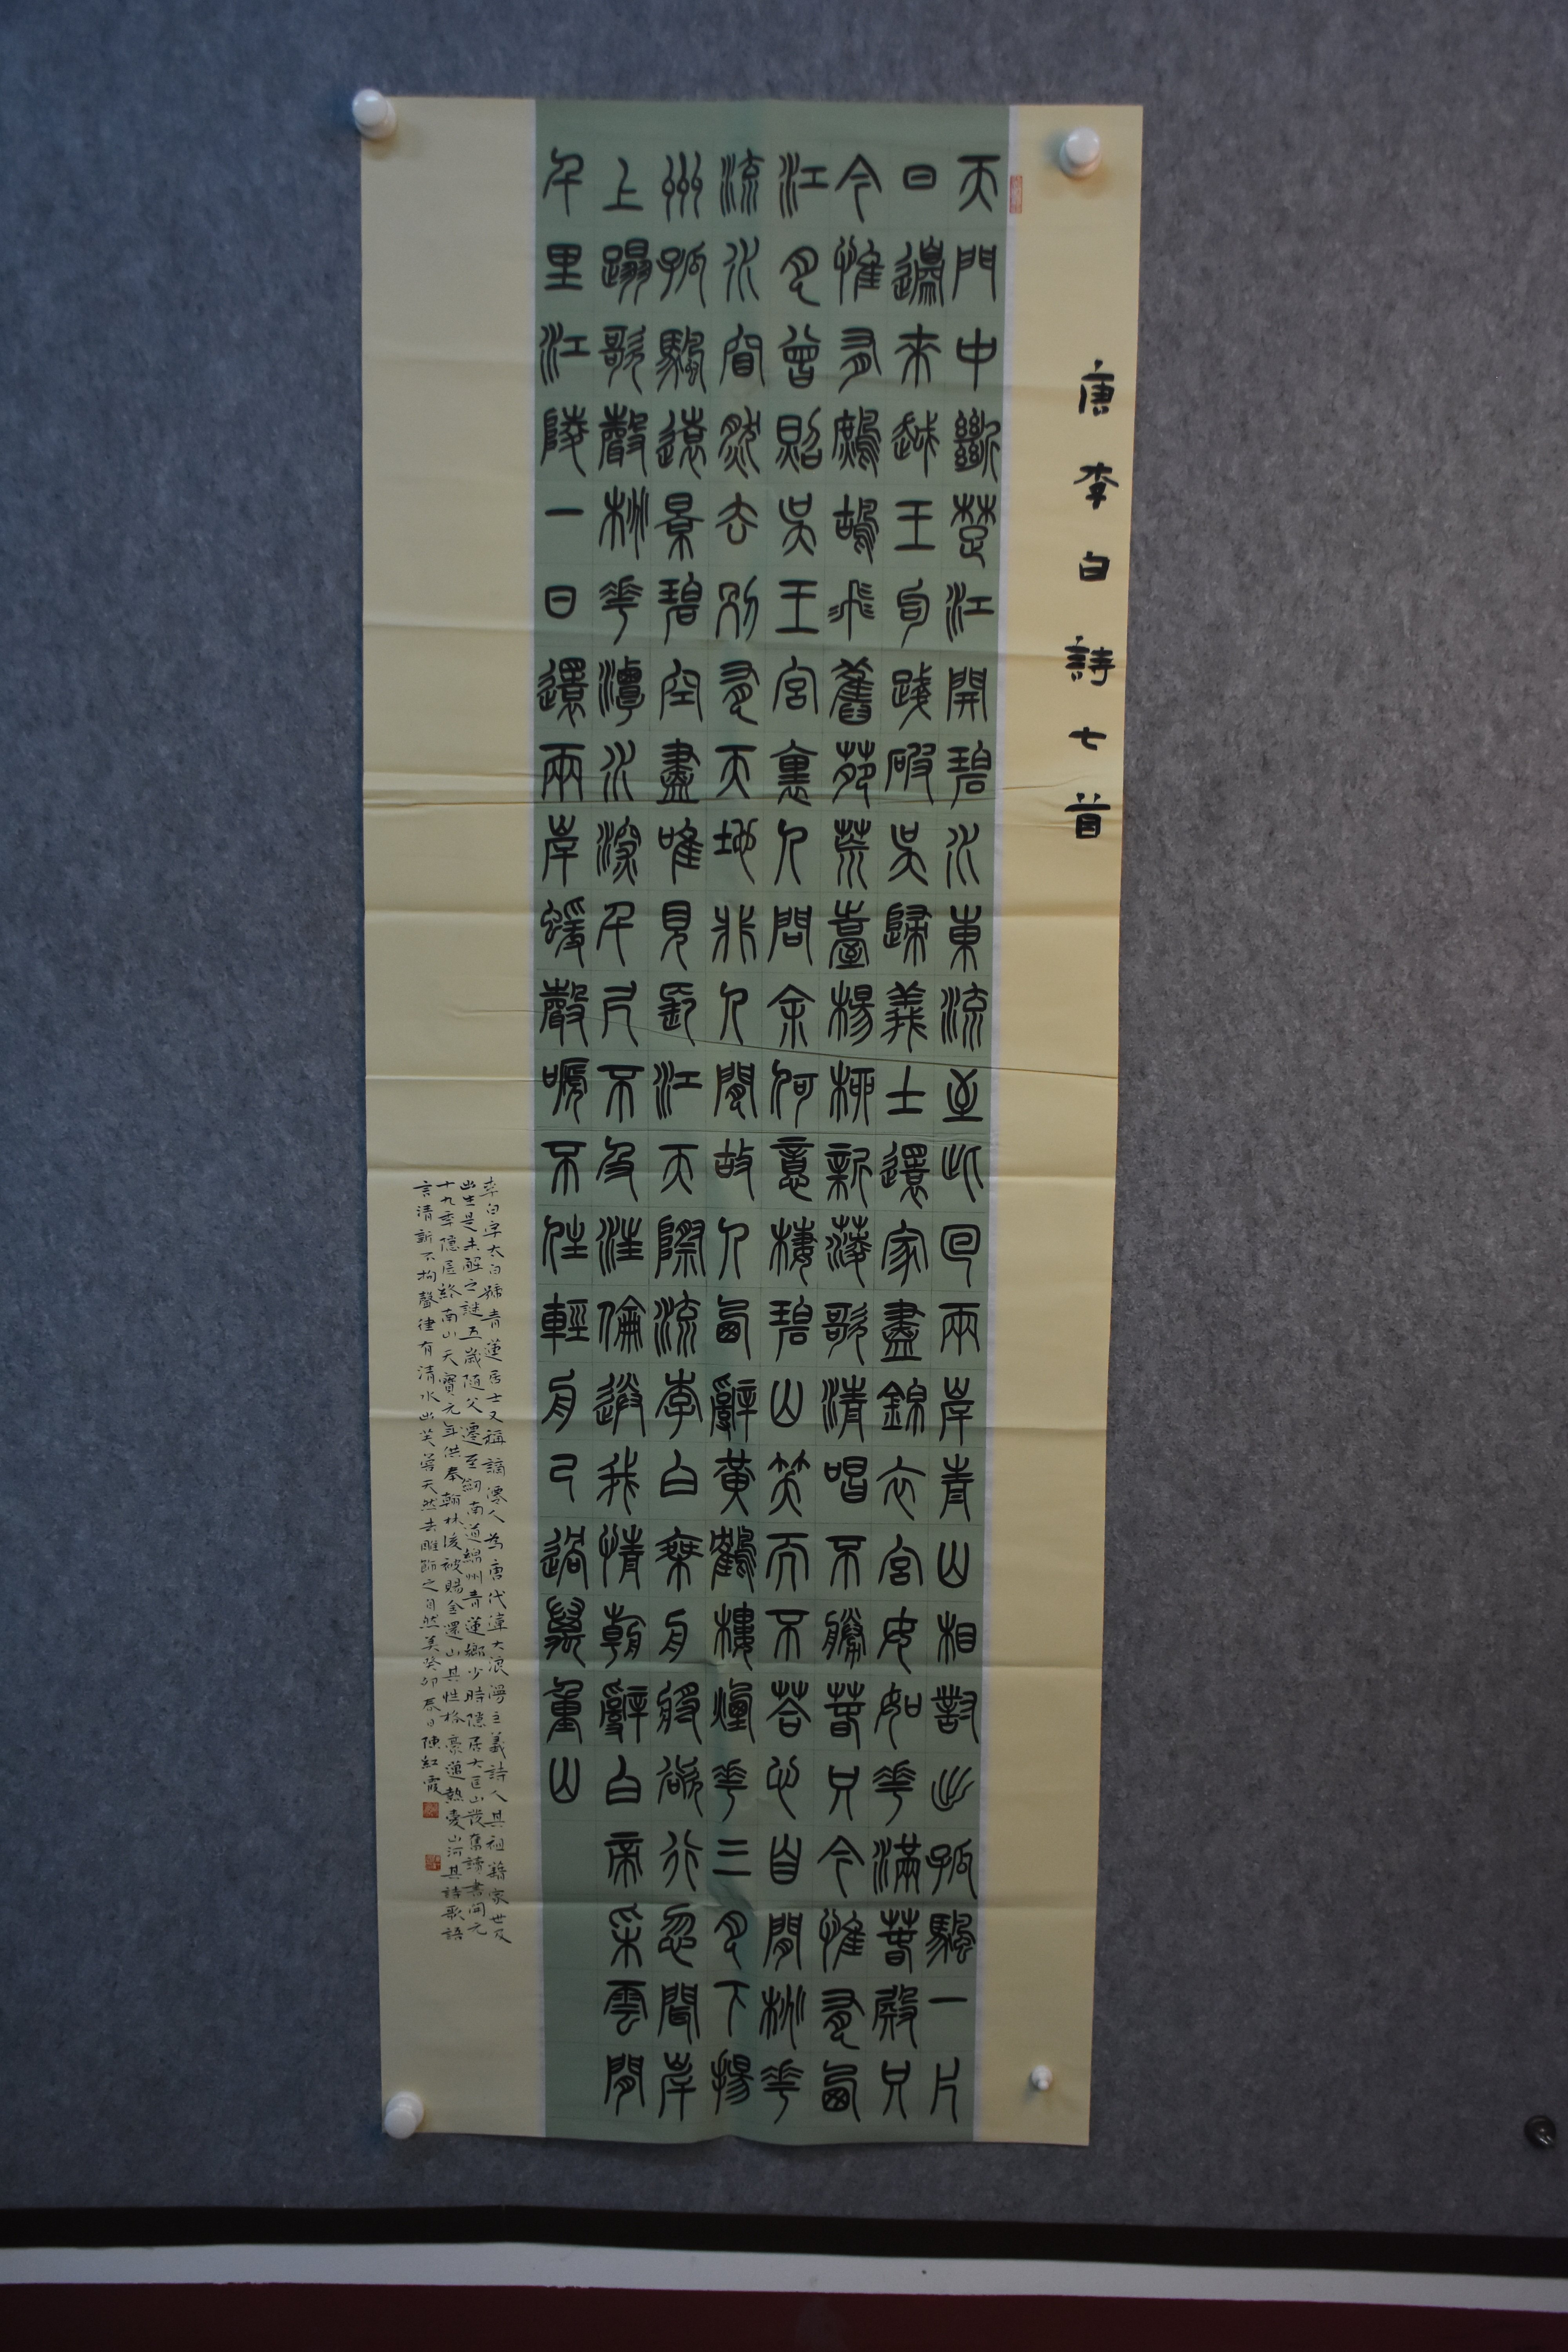 唐李白詩七首
天門中斷楚江開碧水東流至此回兩岸青山相對出孤颿一片
日邊來越王句踐破吳歸義士還家盡錦衣宮女如花滿萅殿只
今惟有鷓鴣飛舊苑荒臺楊柳新蔆歌清唱不勝萅只今惟有西
江月曾照吳王宮裏人問余何意棲碧山笑而不荅心自閒桃花
流水窅然去別有天地非人閒故人西辭黃鶴樓煙花三月下揚
州孤颿遠景碧空盡唯見長江天際流李白乘舟將欲行忽聞岸
上蹋歌聲桃花潭水深千尺不及汪倫送我情朝辭白帝采雲閒
千里江陵一日還兩岸蝯聲嗁不住輕舟已過萬重山
李白字太白號青蓮居士又稱謫僊人為唐代偉大浪漫主義詩人其祖籍家世及
出生是未解之謎五歲隨父遷至劍南道綿州青蓮鄉少時隱居大匡山發奮讀書開元
十九年隱居終南山天寶元年供奉翰林後被賜金還山其性格豪邁熱愛山河其詩歌語
言清新不拘聲律有清水出芙蓉天然去雕飾之自然美癸卯春日陳紅霞